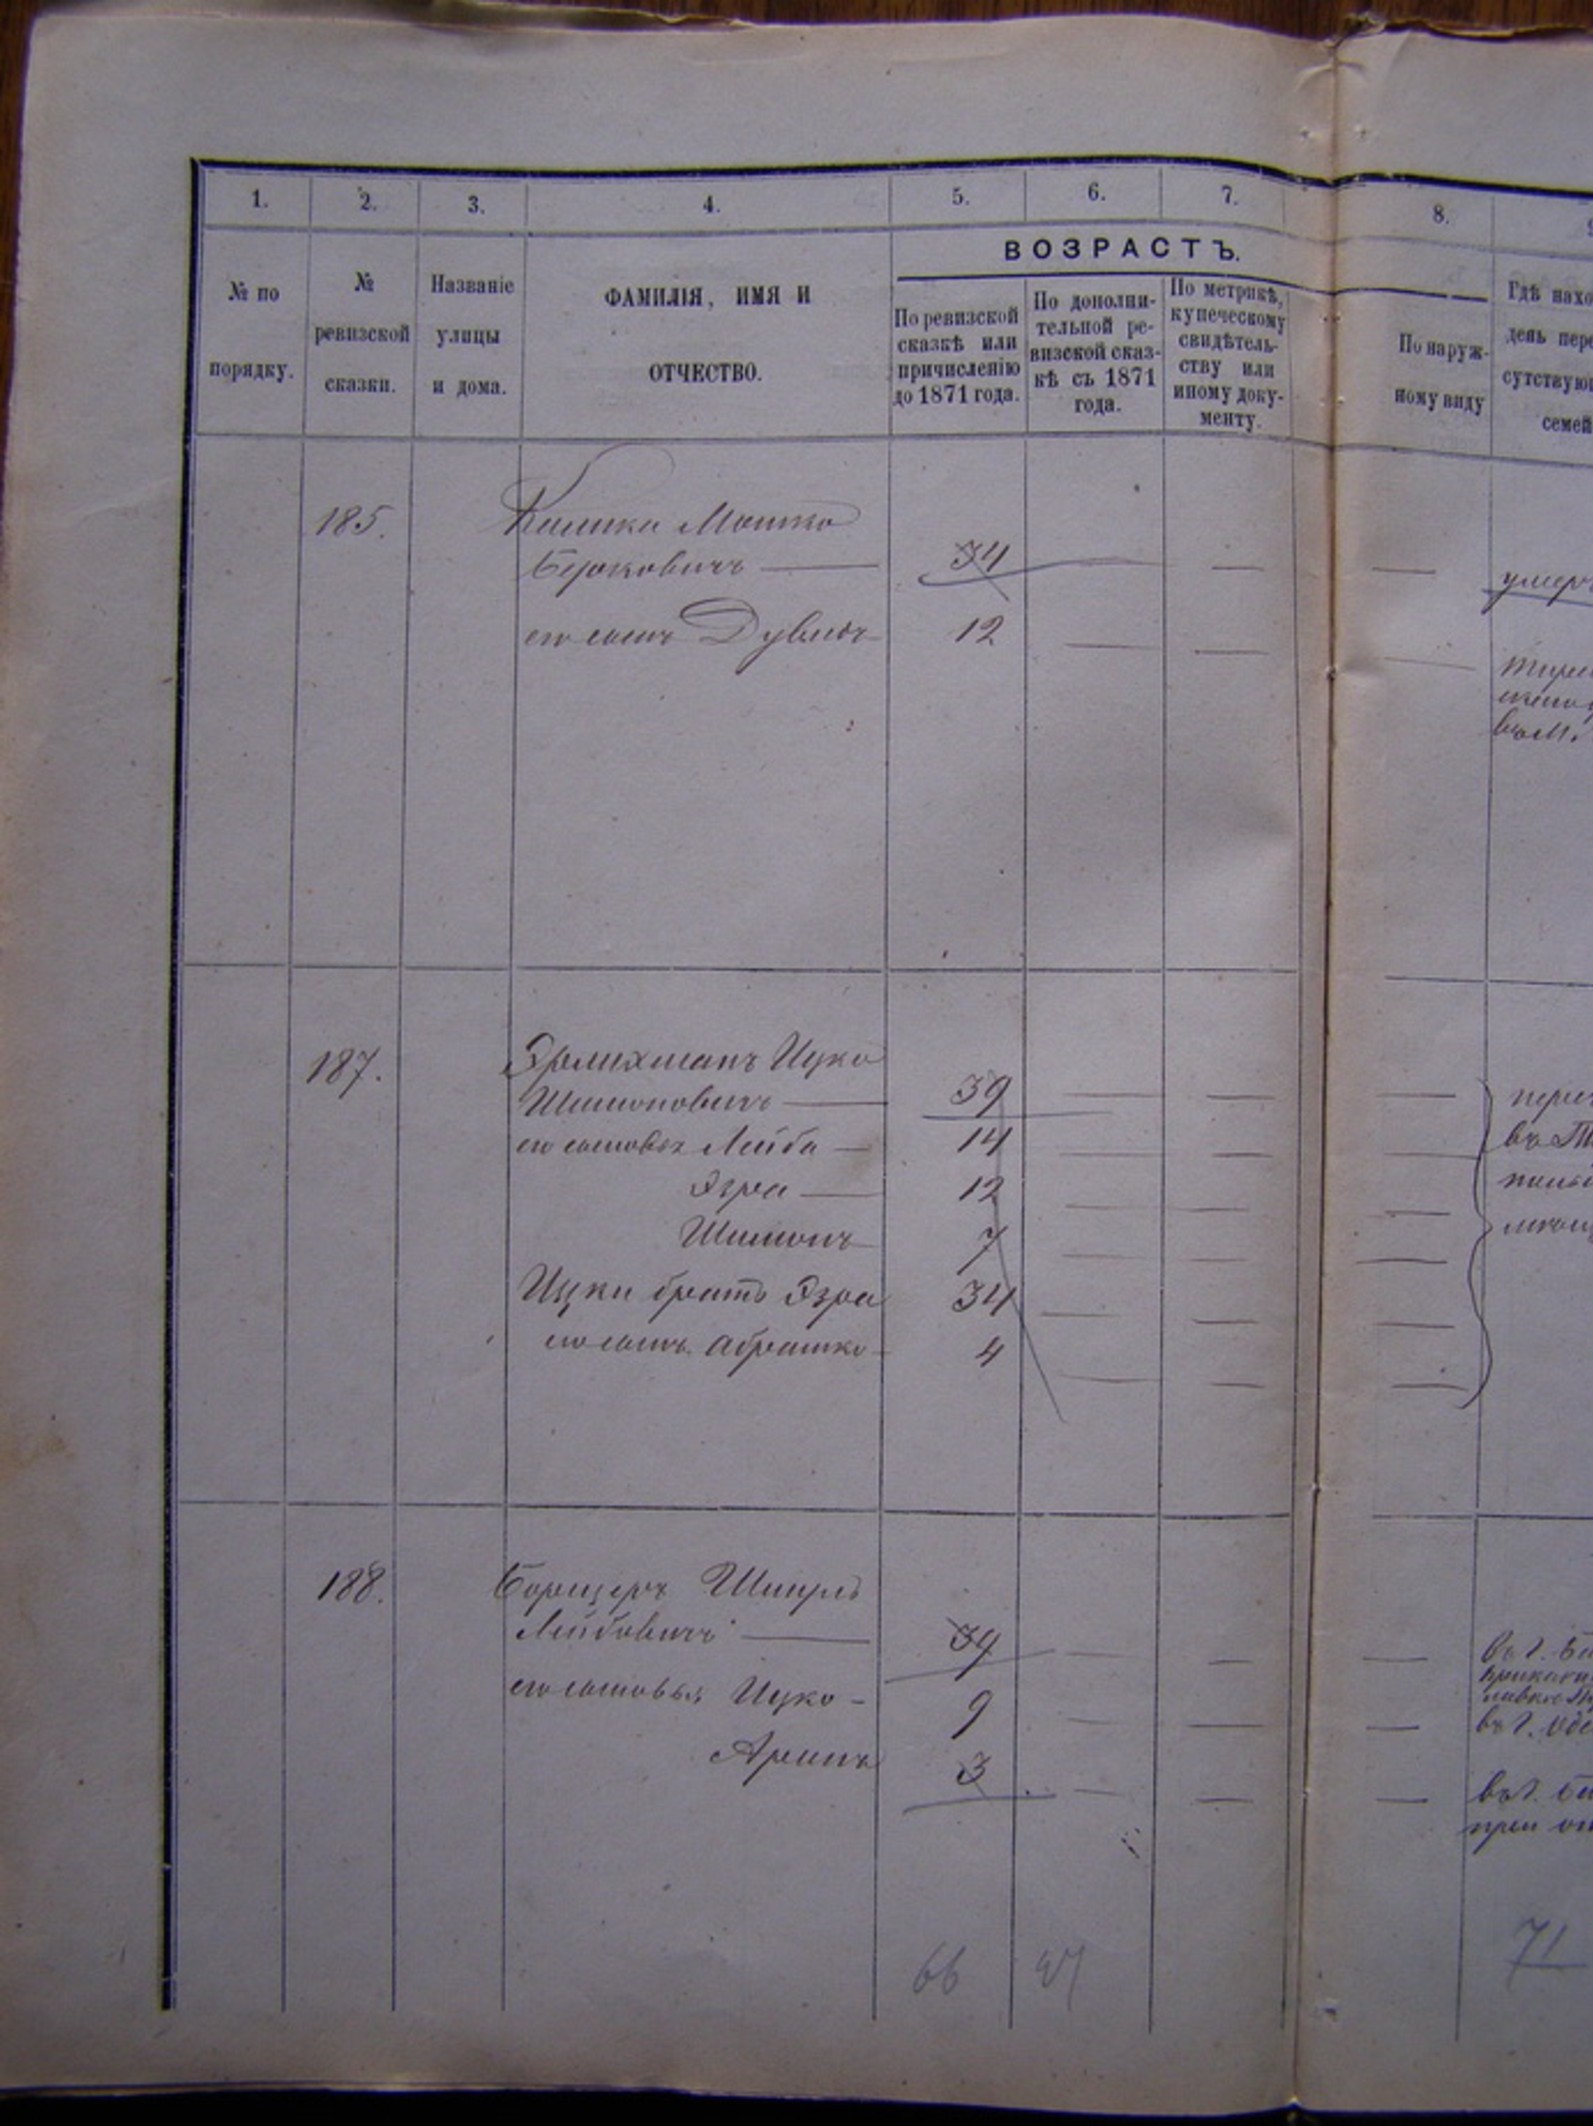 1. 2. 3. 4. 5. 6. 7. 8.
ВОЗРАСТЪ.
№ по порядку.
№ ревизской сказки.
Названіе улицы и дома.
ФАМИЛІЯ, ИМЯ И ОТЧЕСТВО.
По ревизской сказкѣ или причисленію до 1871 года.
По дополни-
тельной ре-
визской сказ-
кѣ съ 1871
года.
По метрикѣ,
купеческому
свидѣтель-
ству или
иному доку-
менту.
По наруж-
ному виду
Гдѣ нахо
день пере
сутствую
семей
185. Калика Мошко
Берковичъ — 34 — — умеръ
его сынъ Дувидъ 12 — — —
187. Эрлихманъ Ицко
Шимоновичъ — 39 — — —
его сыновья Лейба — 14 — — —
Эзра — 12 — — —
Шимонъ 7 — — —
Ицки братъ Эзра 34 — — —
его сынъ Абрашко 4 — — —
188. Борщеръ Шмуль
Лейбовичъ — 39 — — —
его сыновья Ицко - 9 — — —
Аронъ 3 — — —
66
71